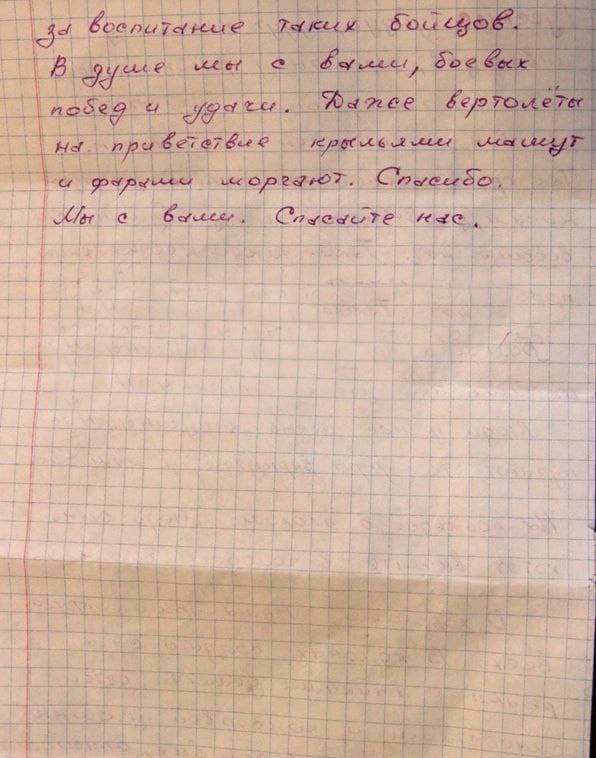 за воспитание таких бойцов.
В душе мы с вами, боевых
побед и удачи. Даже вертолёты
на приветствие крыльями машут
и фарами моргают. Спасибо.
Мы с вами. Спасайте нас.